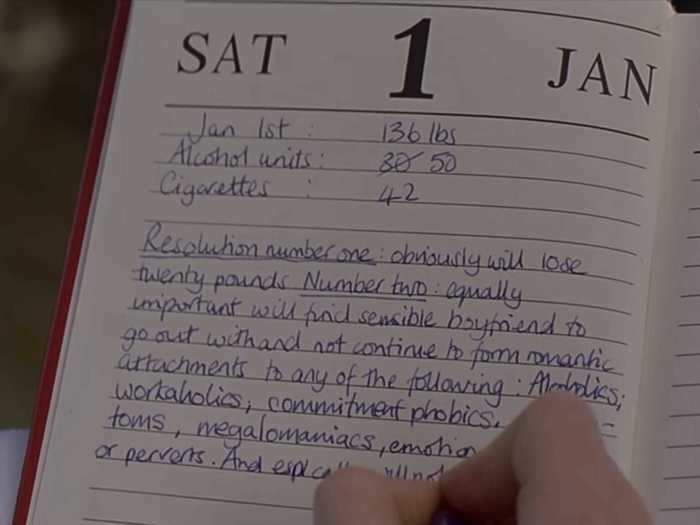 SAT 1 JAN
Jan 1st : 136 lbs
Alcohol units : 30 50
Cigarettes : 42
Resolution number one : obviously will lose
twenty pounds Number two : equally
important will find sensible boyfriend to
go out with and not continue to form romantic
attachments to any of the following : Alcoholics,
workaholics, commitment phobics,
toms, megalomaniacs,
or perverts. And